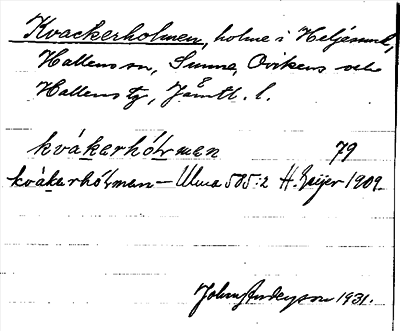 Kvackerholmen, holme i Heljesund,
Hallens sn, Sunne, Ovikens och
Hallens tg, Jämtl. l.
kvákerhólmen 79
kvákerhólmen — Ulma 585:2 H. Geijer 1909.
John Anderson 1931.